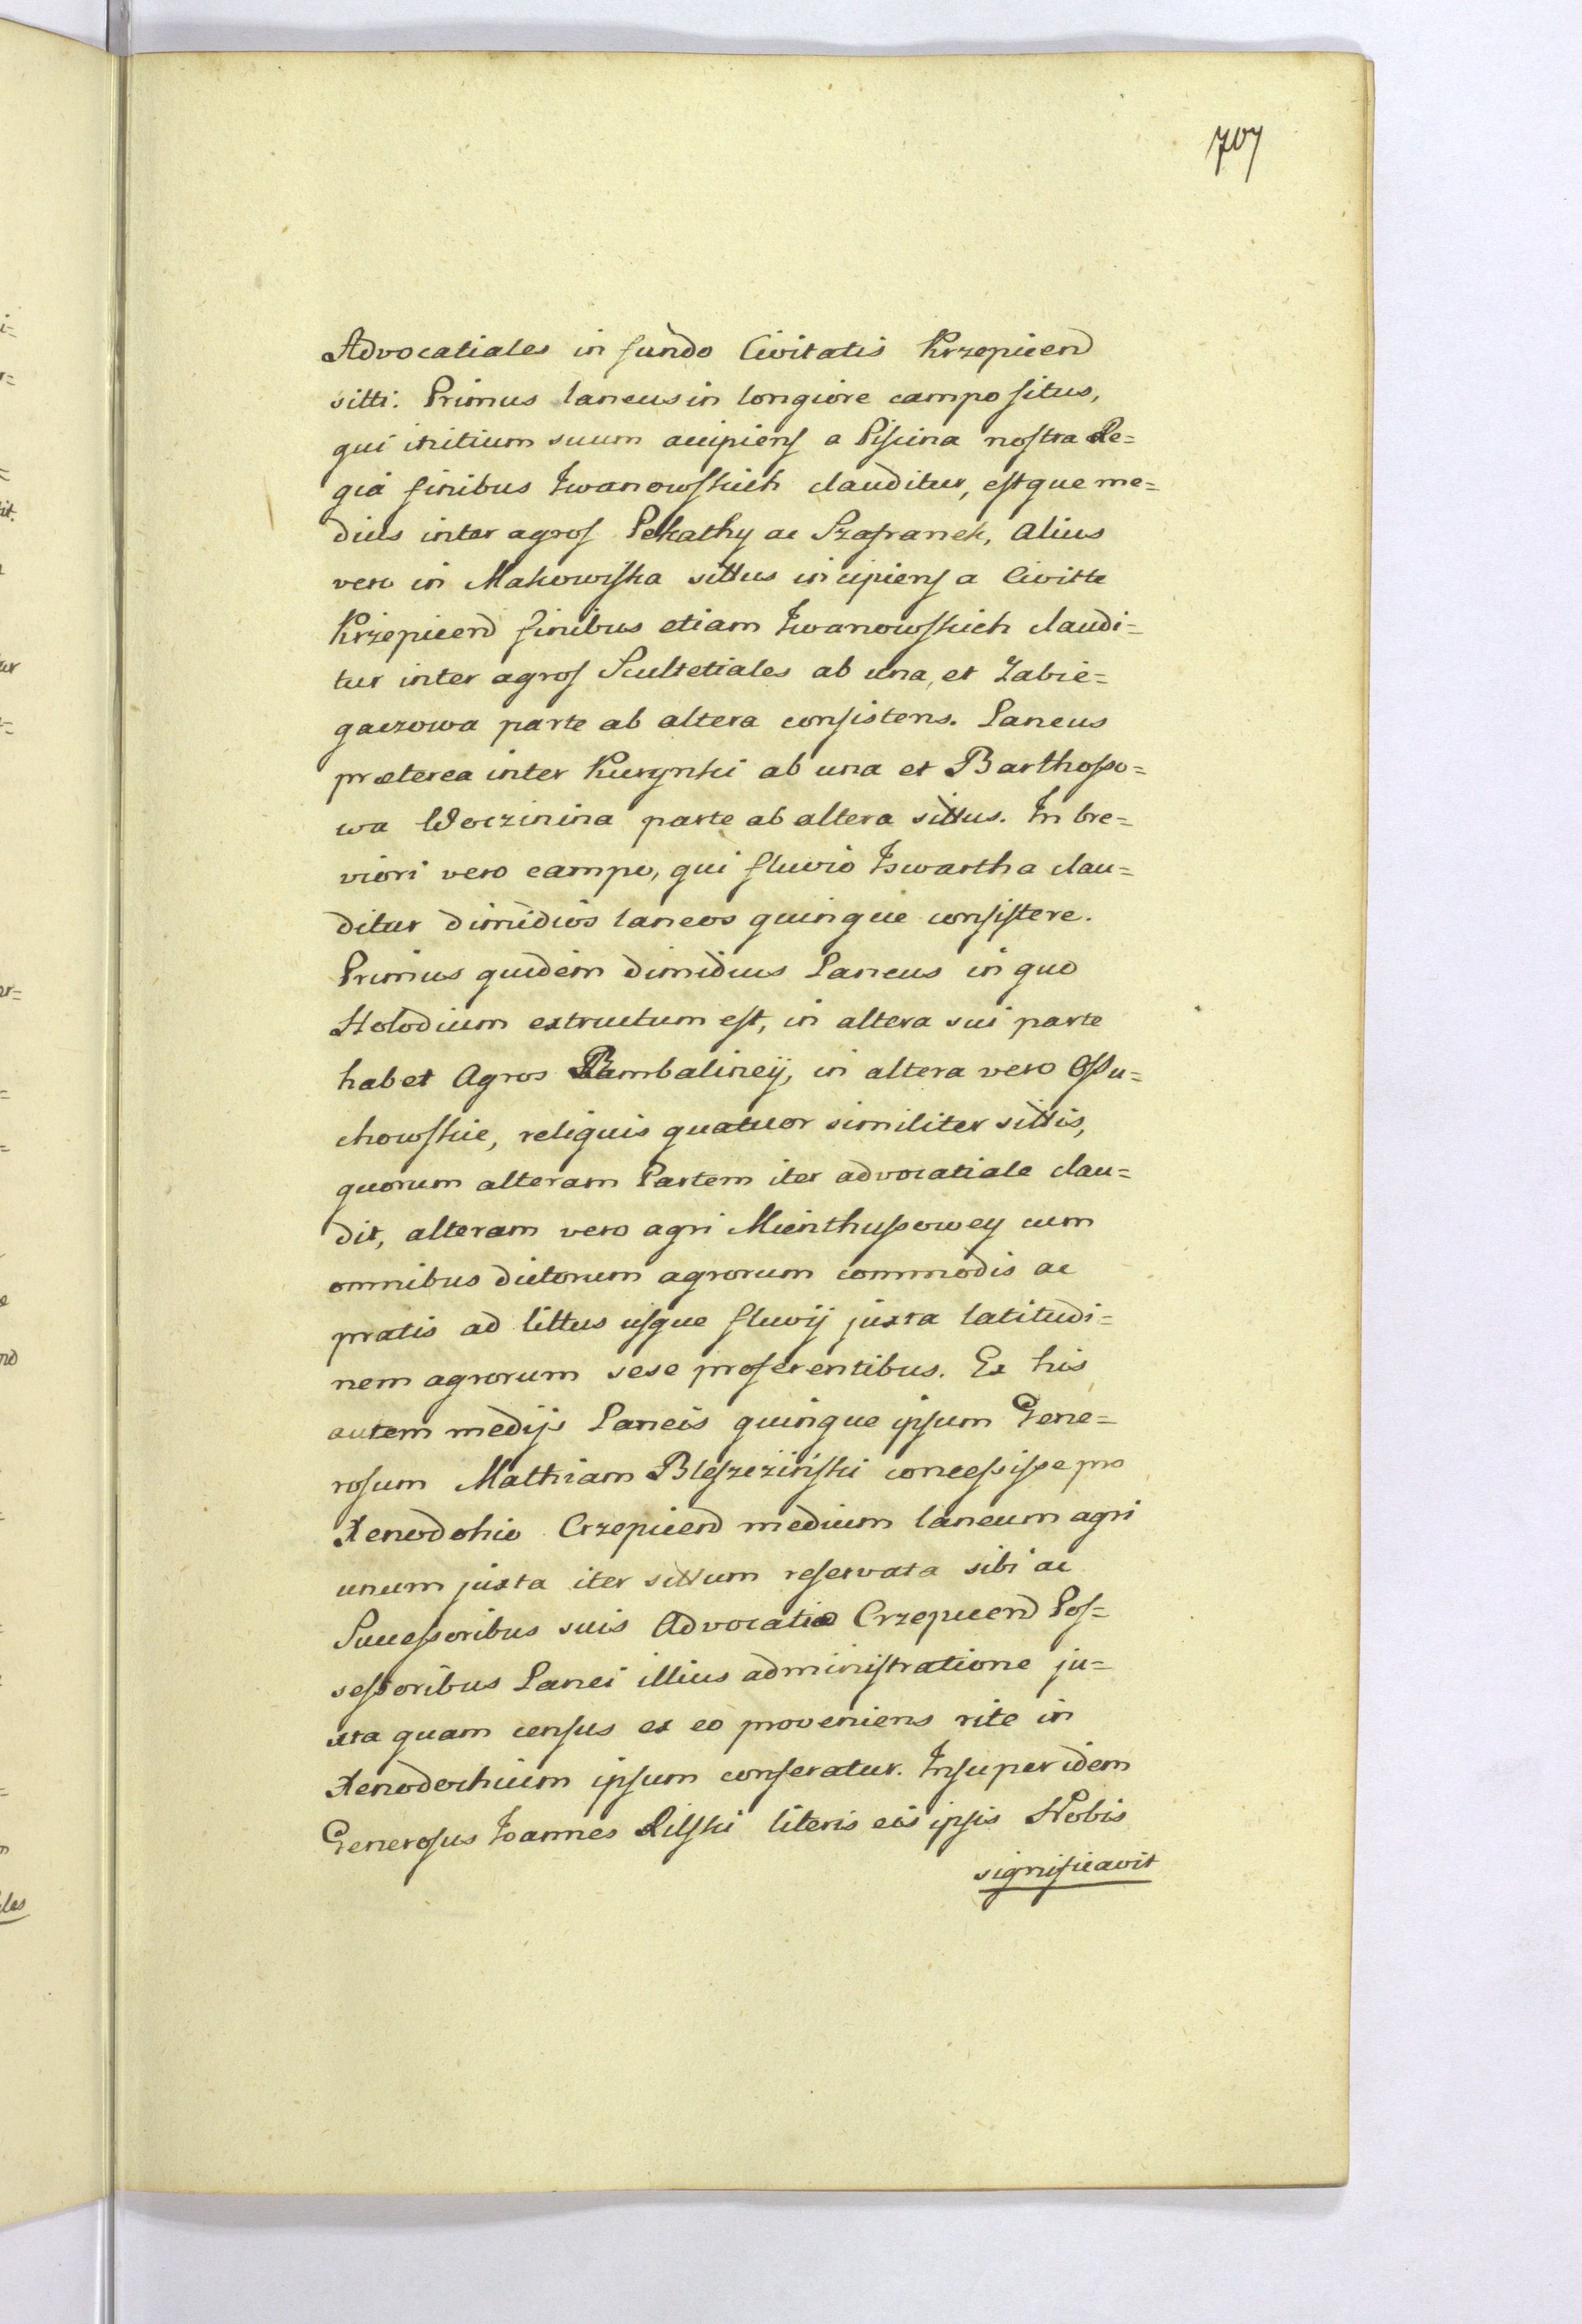 707
Advocatiales in fundo Civitatis Krzepicend
sitti. Primus laneus in longiore campo situs,
qui initium suum accipiens a Piscina nostra Re=
gia finibus Iwanowskich clauditur, estque me=
dius inter agros Pekathy ac Szafranek, Alius
vero in Makowiska sittus incipiens a Civitte
Krzepicend finibus etiam Iwanowskich claudi=
tur inter agros Scultetiales ab una, et Zabie=
gaczowa parte ab altera consistens. Laneus
præterea inter Kurynski ab una et Barthosso=
wa Woczinina parte ab altera sittus. In bre=
viori vero campo, qui fluvio Iswartha clau=
ditur dimidios laneos quinque consistere.
Primus quidem dimidius Laneus in quo
Holodium extructum est, in altera sui parte
habet Agros Bambalineÿ, in altera vero Ossu=
chowskie, reliquis quatuor similiter sittis,
quorum alteram Partem iter advocatiale clau=
dit, alteram vero agri Mienthussowey cum
omnibus dictorum agrorum commodis ac
pratis ad littus usque fluvij juxta latitudi=
nem agrorum sese proferentibus. Ex his
autem medijs Laneis quinque ipsum Gene=
rosum Mathiam Bleszcziński concessisse pro
Xenodohio Crzepicend medium laneum agri
unum juxta iter sittum reservata sibi ac
Successoribus suis Advocatia Crzepicend Pos=
sessoribus Lanei illius administratione ju=
xta quam census ex eo proveniens rite in
Xenodochium ipsum conferatur. Insuper idem
Generosus Ioannes Rilski literis eis ipsis Nobis
significavit